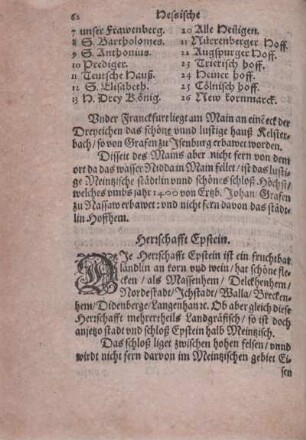 62 Hessische
7 unser Frawenberg. 20 Alle Heiligen.
8 S. Bartholomes. 21 Nürrenberger Hoff.
9 S. Anthonius. 22 Augspurger Hoff.
10 Prediger. 23 Trierisch hoff.
11 Teutsche Hauß. 24 Heiner hoff.
12 S. Elisabeth. 25 Cölnisch hoff.
13 H. Drey König. 26 New kornmarck.
Under Franckfurt liegt am Main an eim eck der
Dreyeichen das schöne unnd lustige hauß Kelster-
bach/ so von Grafen zu Isenburg erbawet worden.
Disseit des Mains aber nicht fern von dem
ort da das wasser Nidda in Main fellet/ ist das lustige
Meintzische städtlin unnd schönes schloß Höchst/
welches umbs jahr 1400 von Ertzb. Johan Grafen
zu Nassaw erbawet: und nicht fern davon das städt-
lin Hoffheim.
Herrschafft Epstein.
DIe Herrschafft Epstein ist ein fruchtbar
ländlin an korn und wein/ hat schöne fle-
cken/ als Massenhem/ Delckhenhem/
Nordestadt/ Ichstadt/ Walla/ Brecken-
hem/ Didenberge/ Langenhan etc. Ob aber gleich diese
Herrschafft mehrertheils Landgräfisch/ so ist doch
anjetzo stadt und schloß Epstein halb Meintzisch.
Das schloß liget zwischen hohen felsen/ unnd
wirdt nicht fern darvon im Meintzischen gebiet Ei-
sen